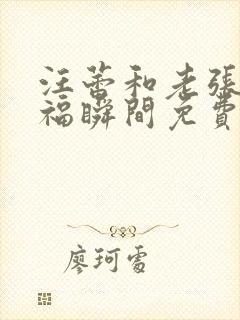 汪蕾和老張
福瞬間免費
廖珂雪